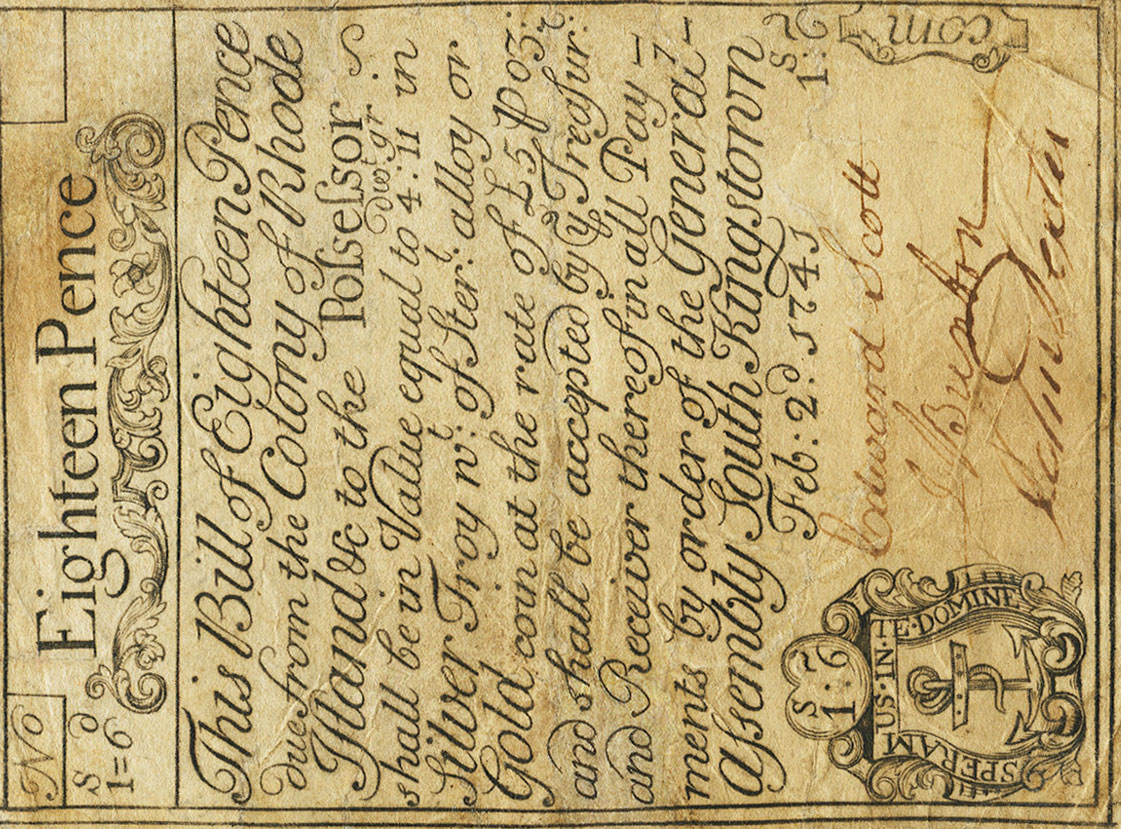 No
s d
1=6
Eighteen Pence
This Bill of Eighteen Pence
due from the Colony of Rhode
Iſland &c to the Poſseſsor
dwt gr
shall be in Value equal to 4:11 in
Silver Troy wt: of Ster:t alloy or
Gold coin at the rate of £5 p oz:
and shall be accepted by ye Treaſur:r
and Receiver thereof in all Pay-
ments by order of the General-
Aſsembly South Kingstown
Feb: 2d. 1741
s
1:6
SPERAMUS·IN·TE·DOMINE
Edward Scott